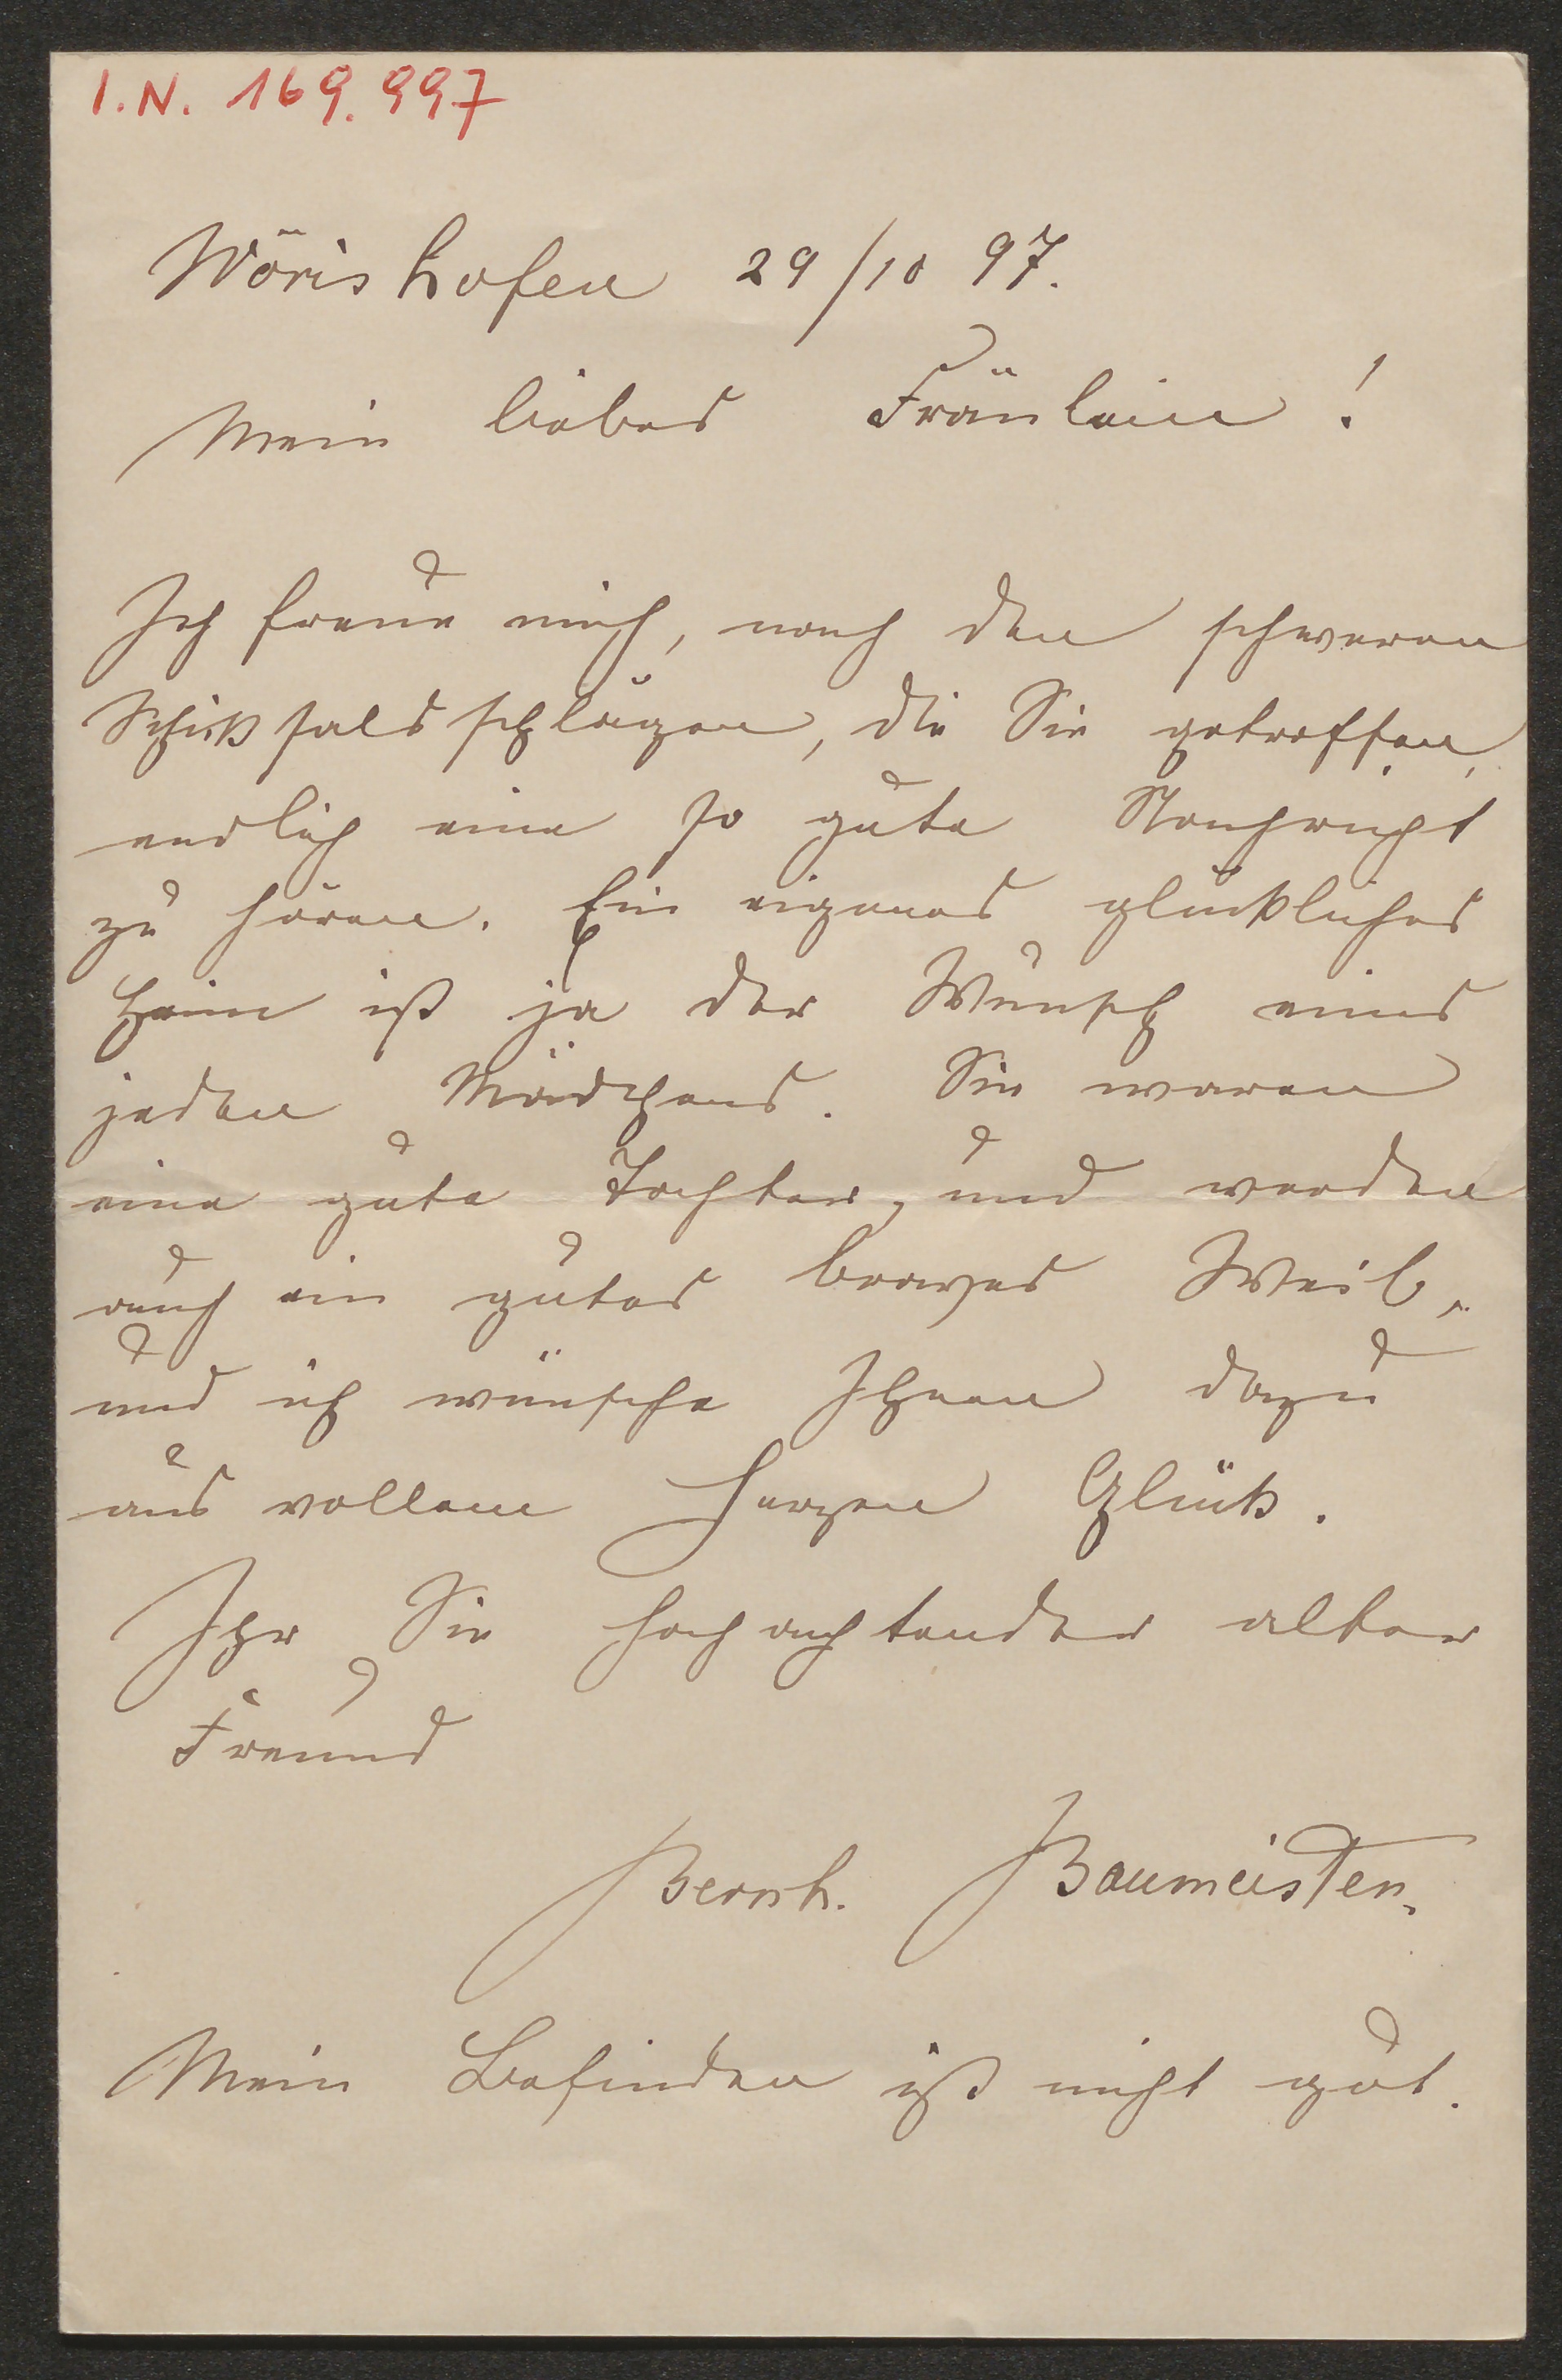 I.N. 169.997
Wörishofen 29/10 97.
Mein liebes Fräulein!
Ich freue mich, nach den schweren
Schiksalsschlägen, die Sie getroffen,
endlich eine so gute Nachricht
zu hören. Ein eigenes glükliches
Heim ist ja der Wunsch eines
jeden Mädchens. Sie waren
eine gute Tochter, und werden
auch ein gutes braves Weib,
und ich wünsche Ihnen dazu
aus vollem Herzen Glük.
Ihr Sie hochachtender alter
Freund
Bernh. Baumeister.
Mein Befinden ist nicht gut.